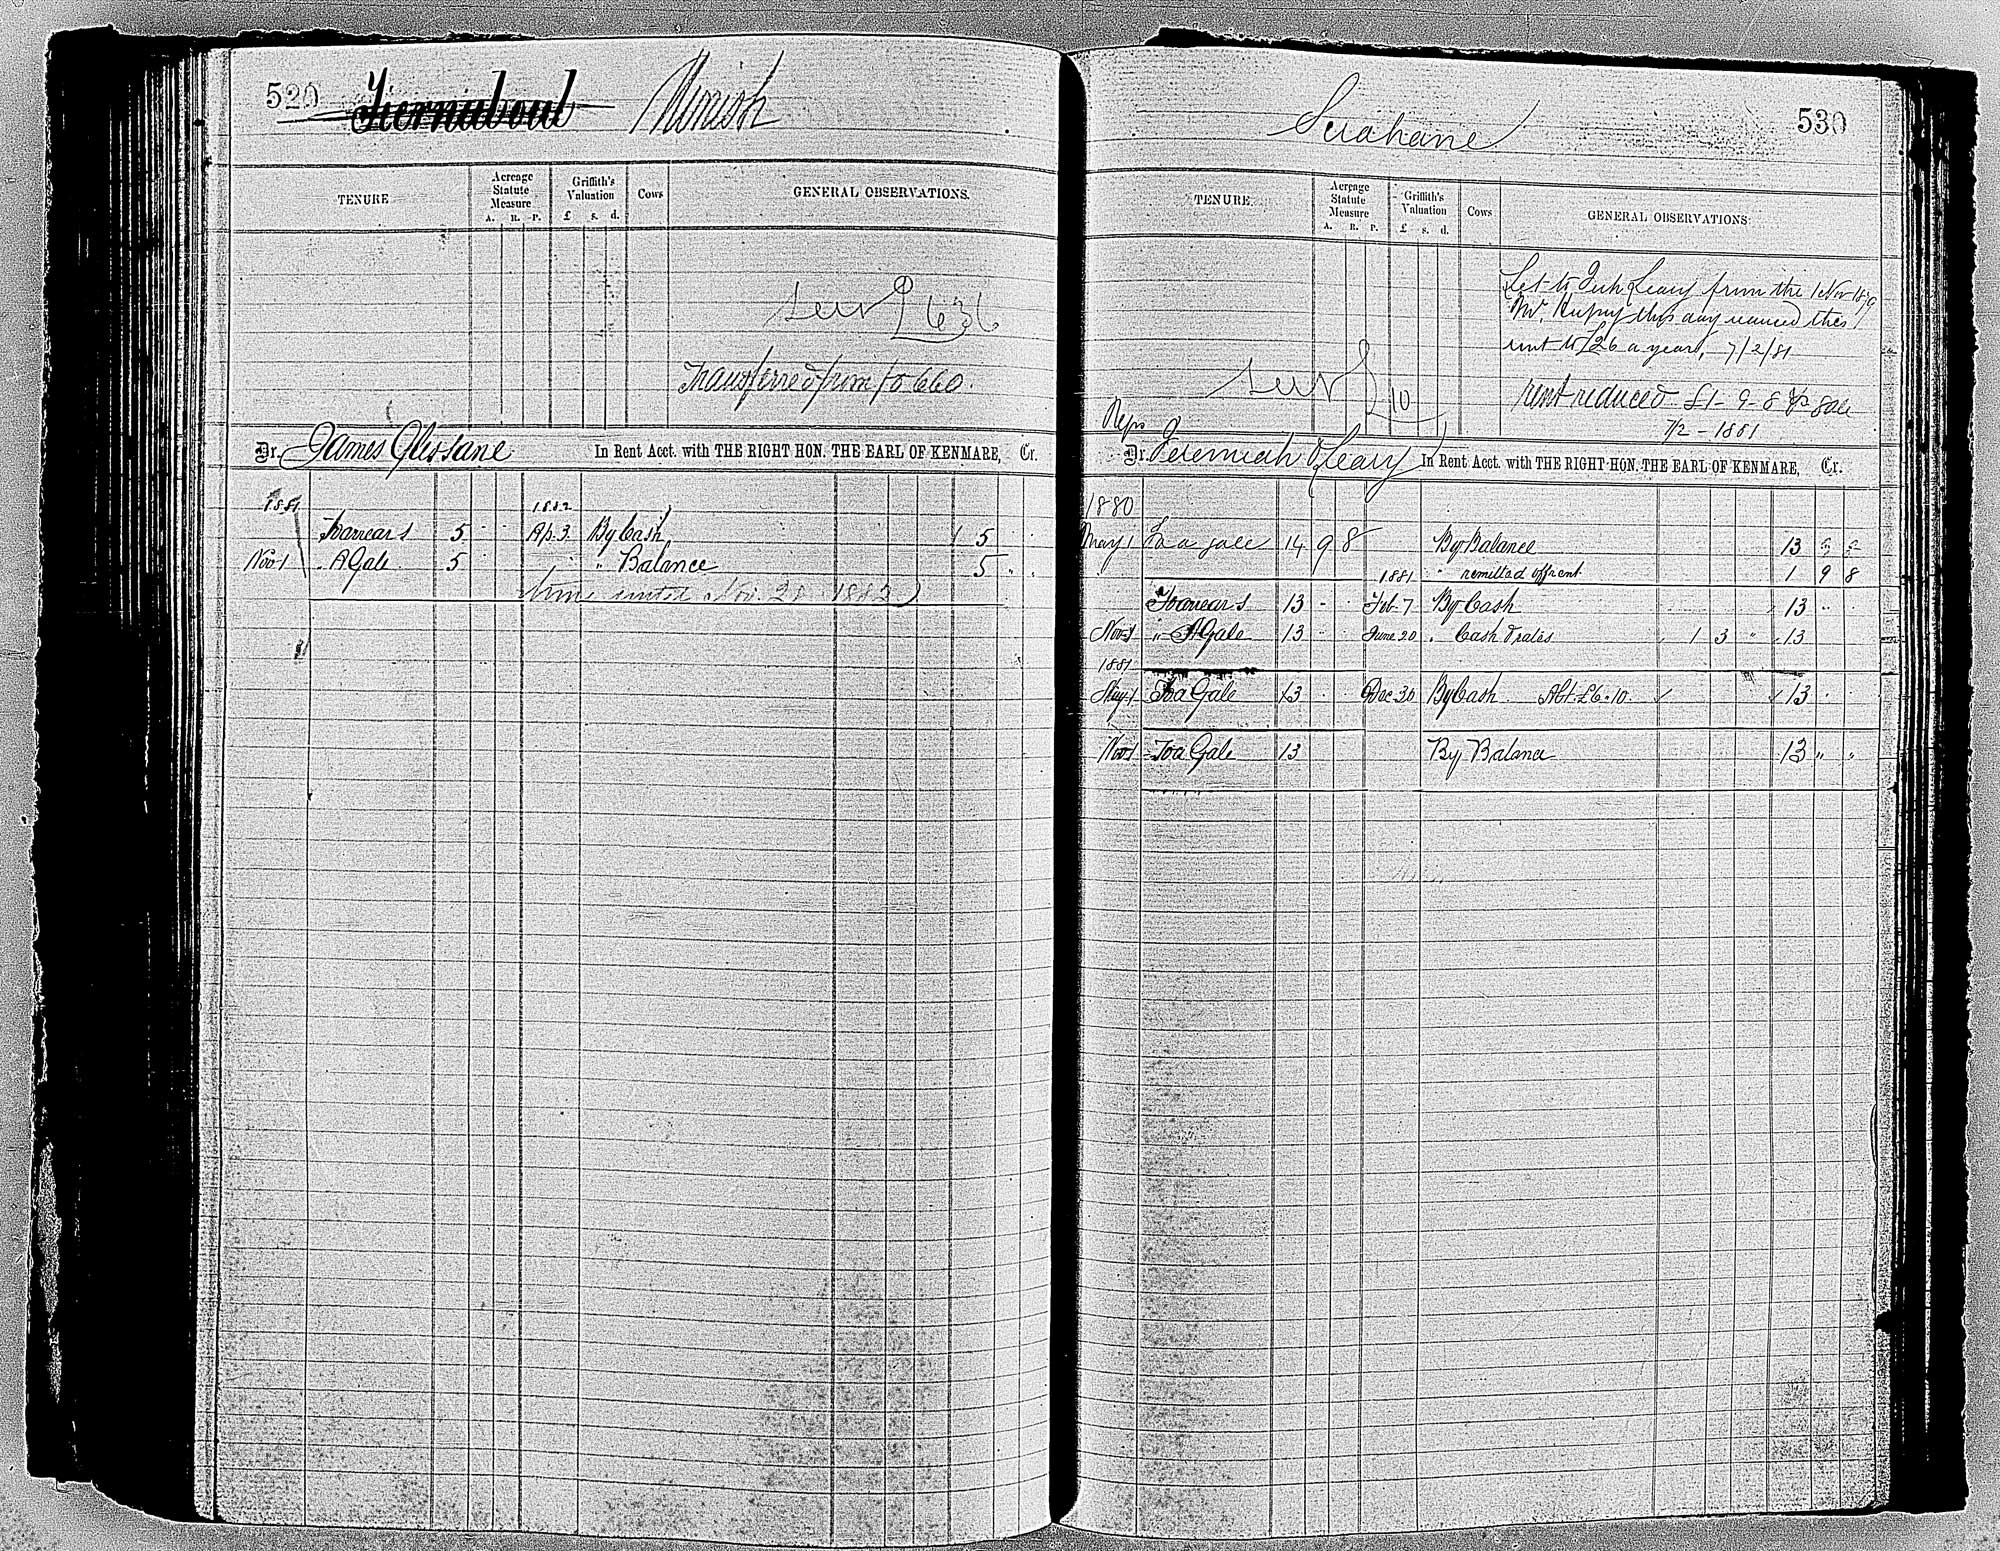 520
Tiernaboul Minish
TENURE
Acreage Statute Measure
A. R. P.
Griffith's Valuation
£ s. d.
Cows
GENERAL OBSERVATIONS.
636
Transferred from fo 660.
Dr. James Glissane In Rent Acct. with THE RIGHT HON. THE EARL OF KENMARE, Cr.
1881 1882
To arrears 5 Ap. 3 By Cash 5
Nov 1 " A Gale 5 " Balance 5
Nov. 28 1882
530
TENURE
Acreage Statute Measure
A. R. P.
Griffith's Valuation
£ s. d.
Cows
GENERAL OBSERVATIONS.
Let to Leary from the 1 Nov 1879
Mr. Hussey this day reduced this
rent to £26 a year, 7/2/81
10
rent reduced £1-9-8 Gale
7/2-1881
Reps of
Dr. Jeremiah O'Leary In Rent Acct. with THE RIGHT HON. THE EARL OF KENMARE, Cr.
1880
May 1 To a gale 14 9 8 By Balance 13
1881 " remitted off rent 1 9 8
To arrears 13 Feb. 7 By Cash 13
Nov 1 " A Gale 13 June 20 " Cash & rates 1 3 " 13
1881
May 1 To a Gale 13 Dec. 30 By Cash Abt. £6.10. 13
Nov 1 To a Gale 13 By Balance 13 " "